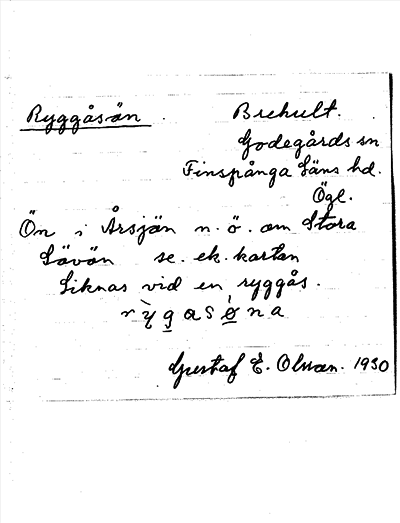 Ryggåsön. Brehult.
Godegårds sn
Finspånga läns hd.
Ögl.
Ön i Årsjön n. ö. om Stora
Lövön se. ek. kartan
Liknas vid en ryggås.
Gustaf E. Olsson. 1930